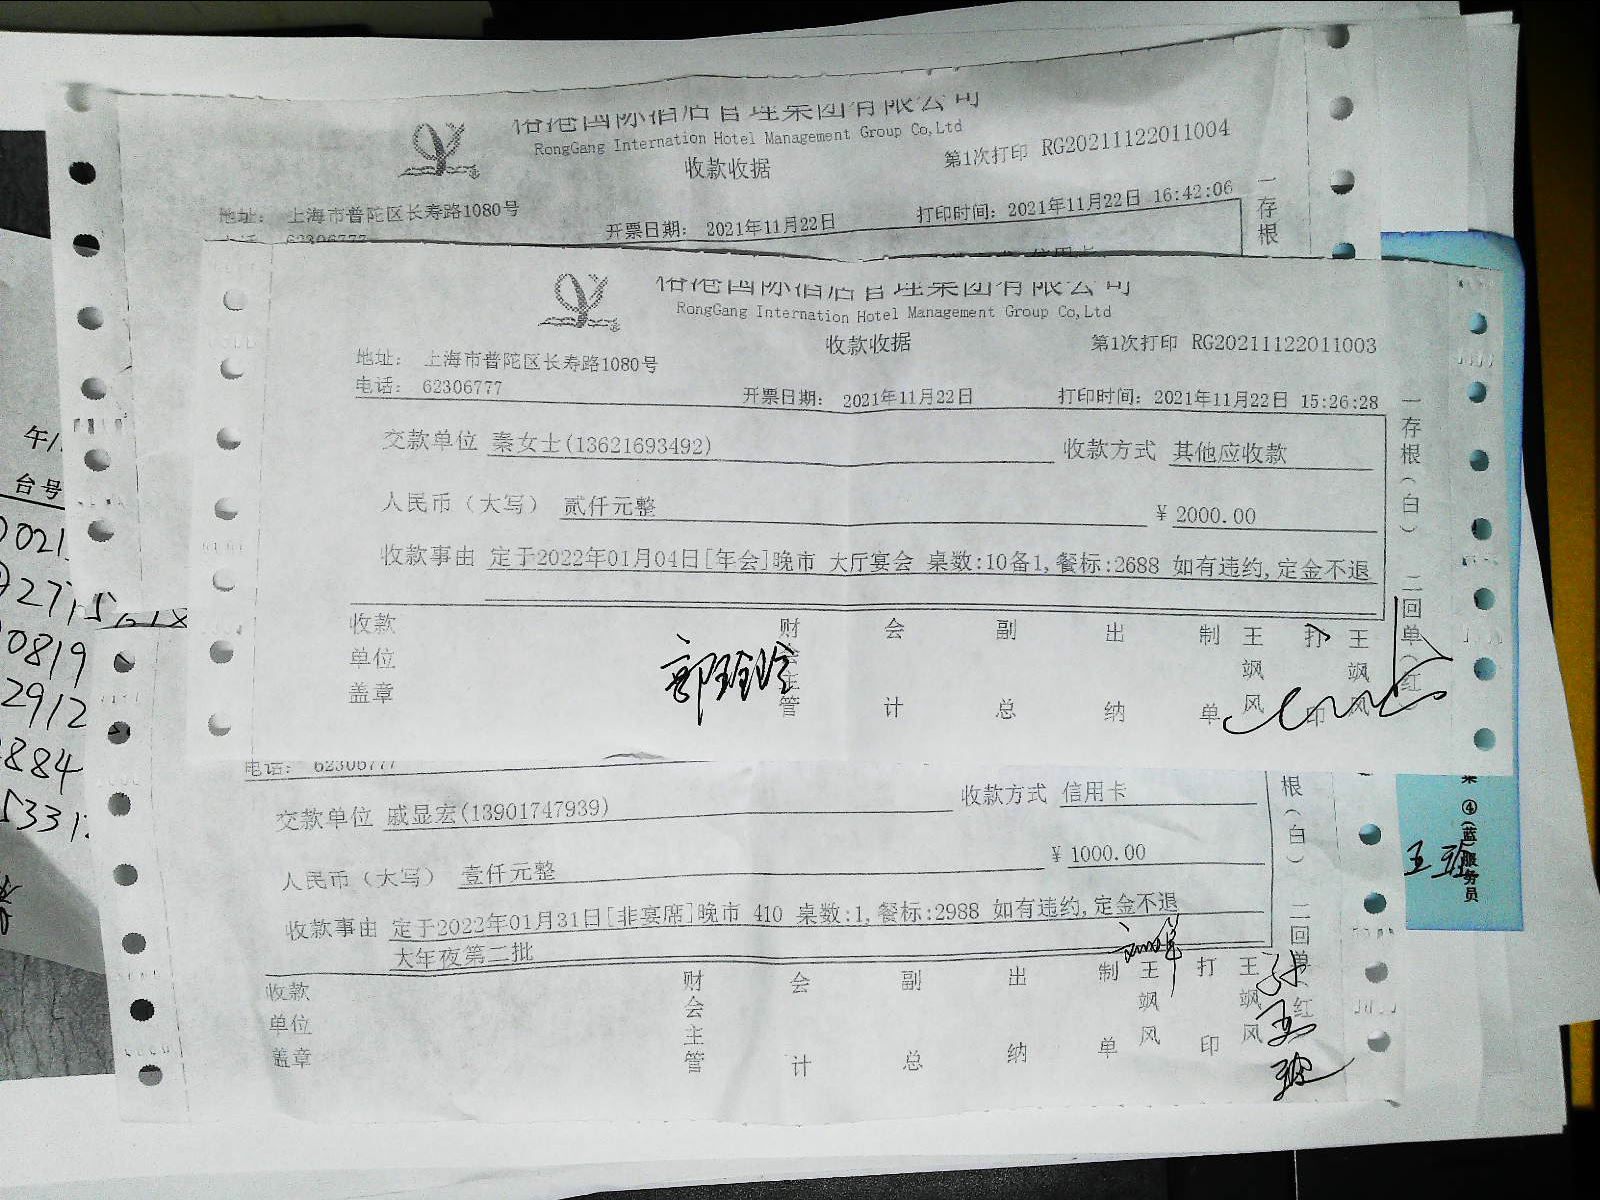 国际酒店管理集团有限公司
RongGang Internation Hotel Management Group Co,Ltd
收款收据
第1次打印 RG20211122011004
地址： 上海市普陀区长寿路1080号
开票日期： 2021年11月22日
打印时间：2021年11月22日 16:42:06
一存根
信用卡
国际酒店管理集团有限公司
RongGang Internation Hotel Management Group Co,Ltd
收款收据
第1次打印 RG20211122011003
地址： 上海市普陀区长寿路1080号
电话： 62306777
开票日期： 2021年11月22日
打印时间：2021年11月22日 15:26:28
交款单位 秦女士(13621693492) 收款方式 其他应收款
人民币（大写） 贰仟元整 ￥2000.00
收款事由 定于2022年01月04日[年会]晚市 大厅宴会 桌数:10备1,餐标:2688 如有违约,定金不退
收款单位盖章
财会主管
会计
副总
出纳
制单
王飒风
打印
王飒风
一存根(白) 二回单(红
电话： 62306777
交款单位 戚显宏(13901747939) 收款方式 信用卡
人民币（大写） 壹仟元整 ￥1000.00
收款事由 定于2022年01月31日[非宴席]晚市 410 桌数:1,餐标:2988 如有违约,定金不退
大年夜第二批
收款单位盖章
财会主管
会计
副总
出纳
制单
王飒风
打印
王飒风
根(白) 二回单(红
④(蓝)服务员
台号
0819
2912
884
5331